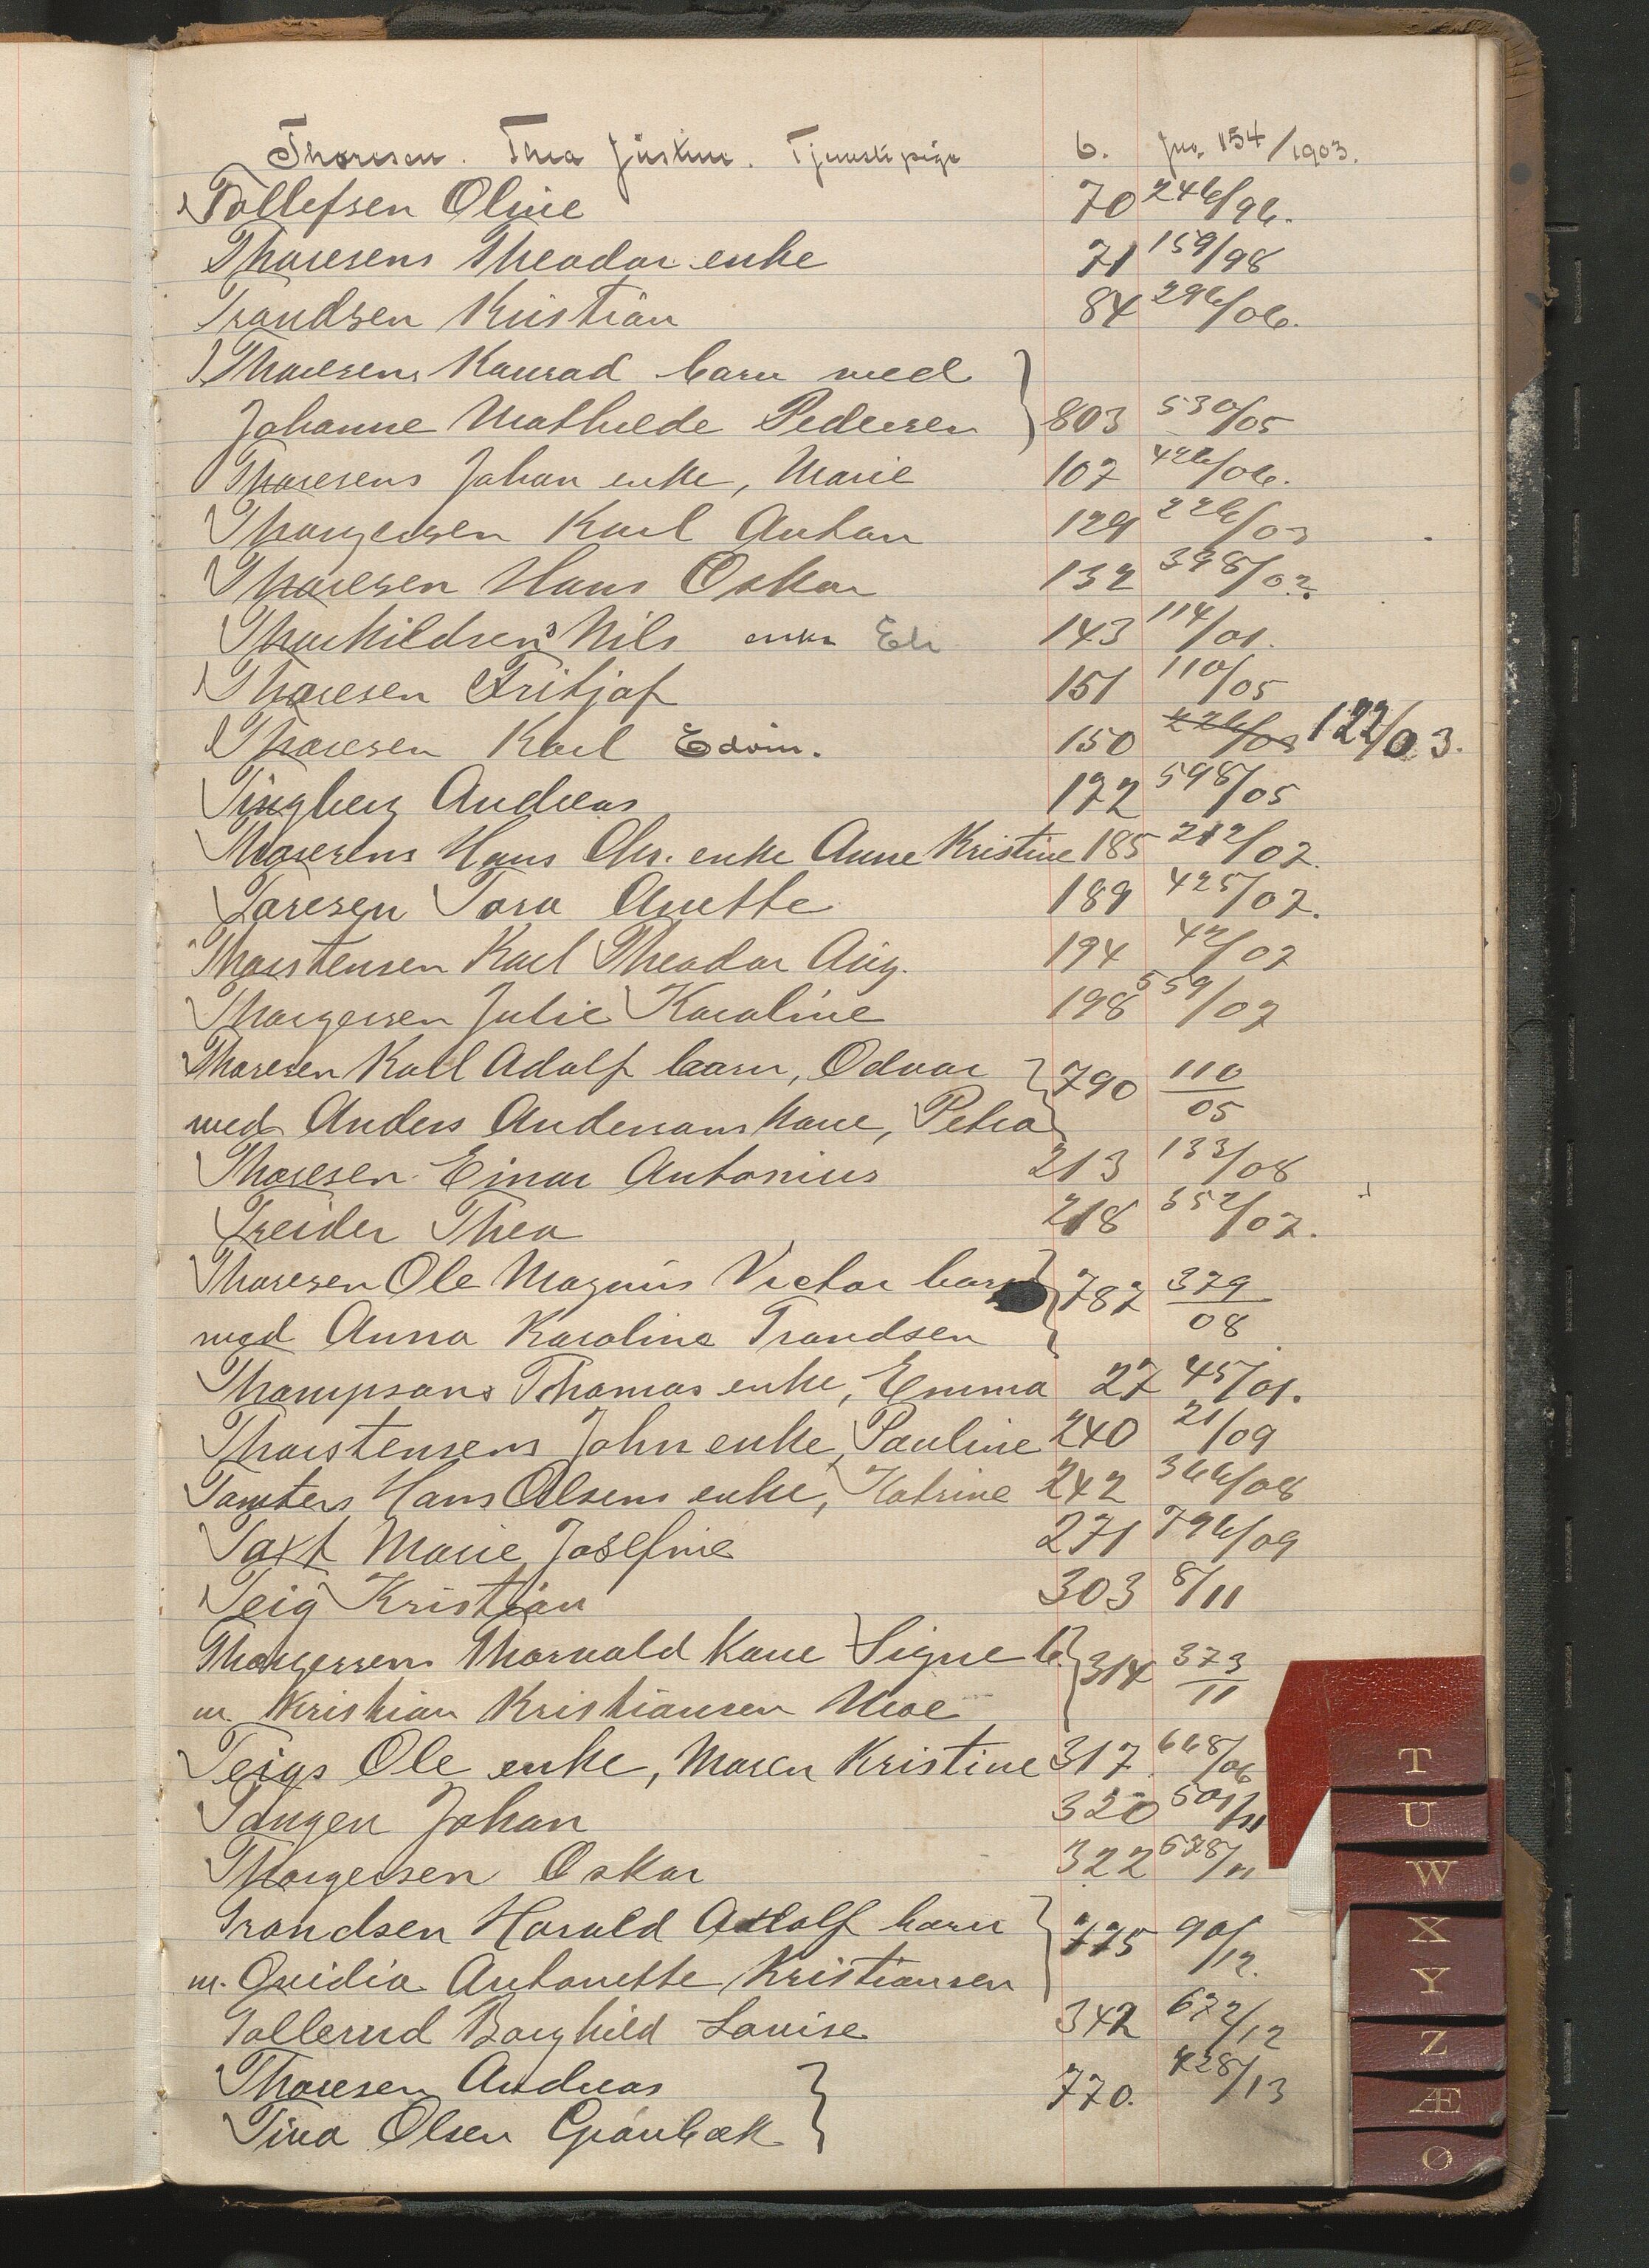 Thoresen. Thea Justine. Tjenestepige 6. Jno. 154/1903.
Tollefsen Oline 70 246/96.
Thoresens Theodor enke 71 159/98
Trandsen Kristian 84 296/06.
Thoresens Konrad barn med
Johanne Mathilde Pedersen 803 530/05
Thoresens Johan enke, Marie 107 426/06.
Thorgersen Karl Anton 129 226/03
Thoresen Hans Oskar 132 398/02.
Thorkildsens Nils enke Eli 143 114/01.
Thoresen Fritjof 151 110/05
Thoresen Karl Edvin. 150 226/03 122/03.
Tingberg Andreas 172 598/05
Thoresens Hans Chr. enke Anne Kristine 185 212/07.
Toresen Tora Anette 189 425/07.
Thorstensen Karl Theodor Aug. 194 42/07
Thorgersen Julie Karoline 198 559/07
Thoresen Karl Adolf barn, Odvar
med Anders Andersons kone, Petra 790 110/05
Thoresen Einar Antonius 213 133/08
Treider Thea 218 552/07.
Thoresen Ole Magnus Victor barn
med Anna Karoline Trandsen 787 379/08
Thompsons Thomas enke, Emma 27 45/01.
Thorstensens John enke, Pauline 240 21/09
Tomters Hans Olsens enke, Katrine 242 366/08
Taxt Marie Josefine 271 796/09
Teig Kristian 303 8/11
Thorgersens Thorvald kone Signe b.
m. Kristian Kristiansen Moe 314 373/11
Teigs Ole enke, Maren Kristine 317 668/06
Tangen Johan 320 501/11
Thorgersen Oskar 322 678/11
Trandsen Harald Adolf barn
m. Ovidia Antonette Kristiansen 775 901/12.
Tollerud Borghild Lovise 342 672/12
Thoresen Andreas 770. 428/13
Tina Olsen Grønbæk
T
U
W
X
Y
Z
Æ
Ø